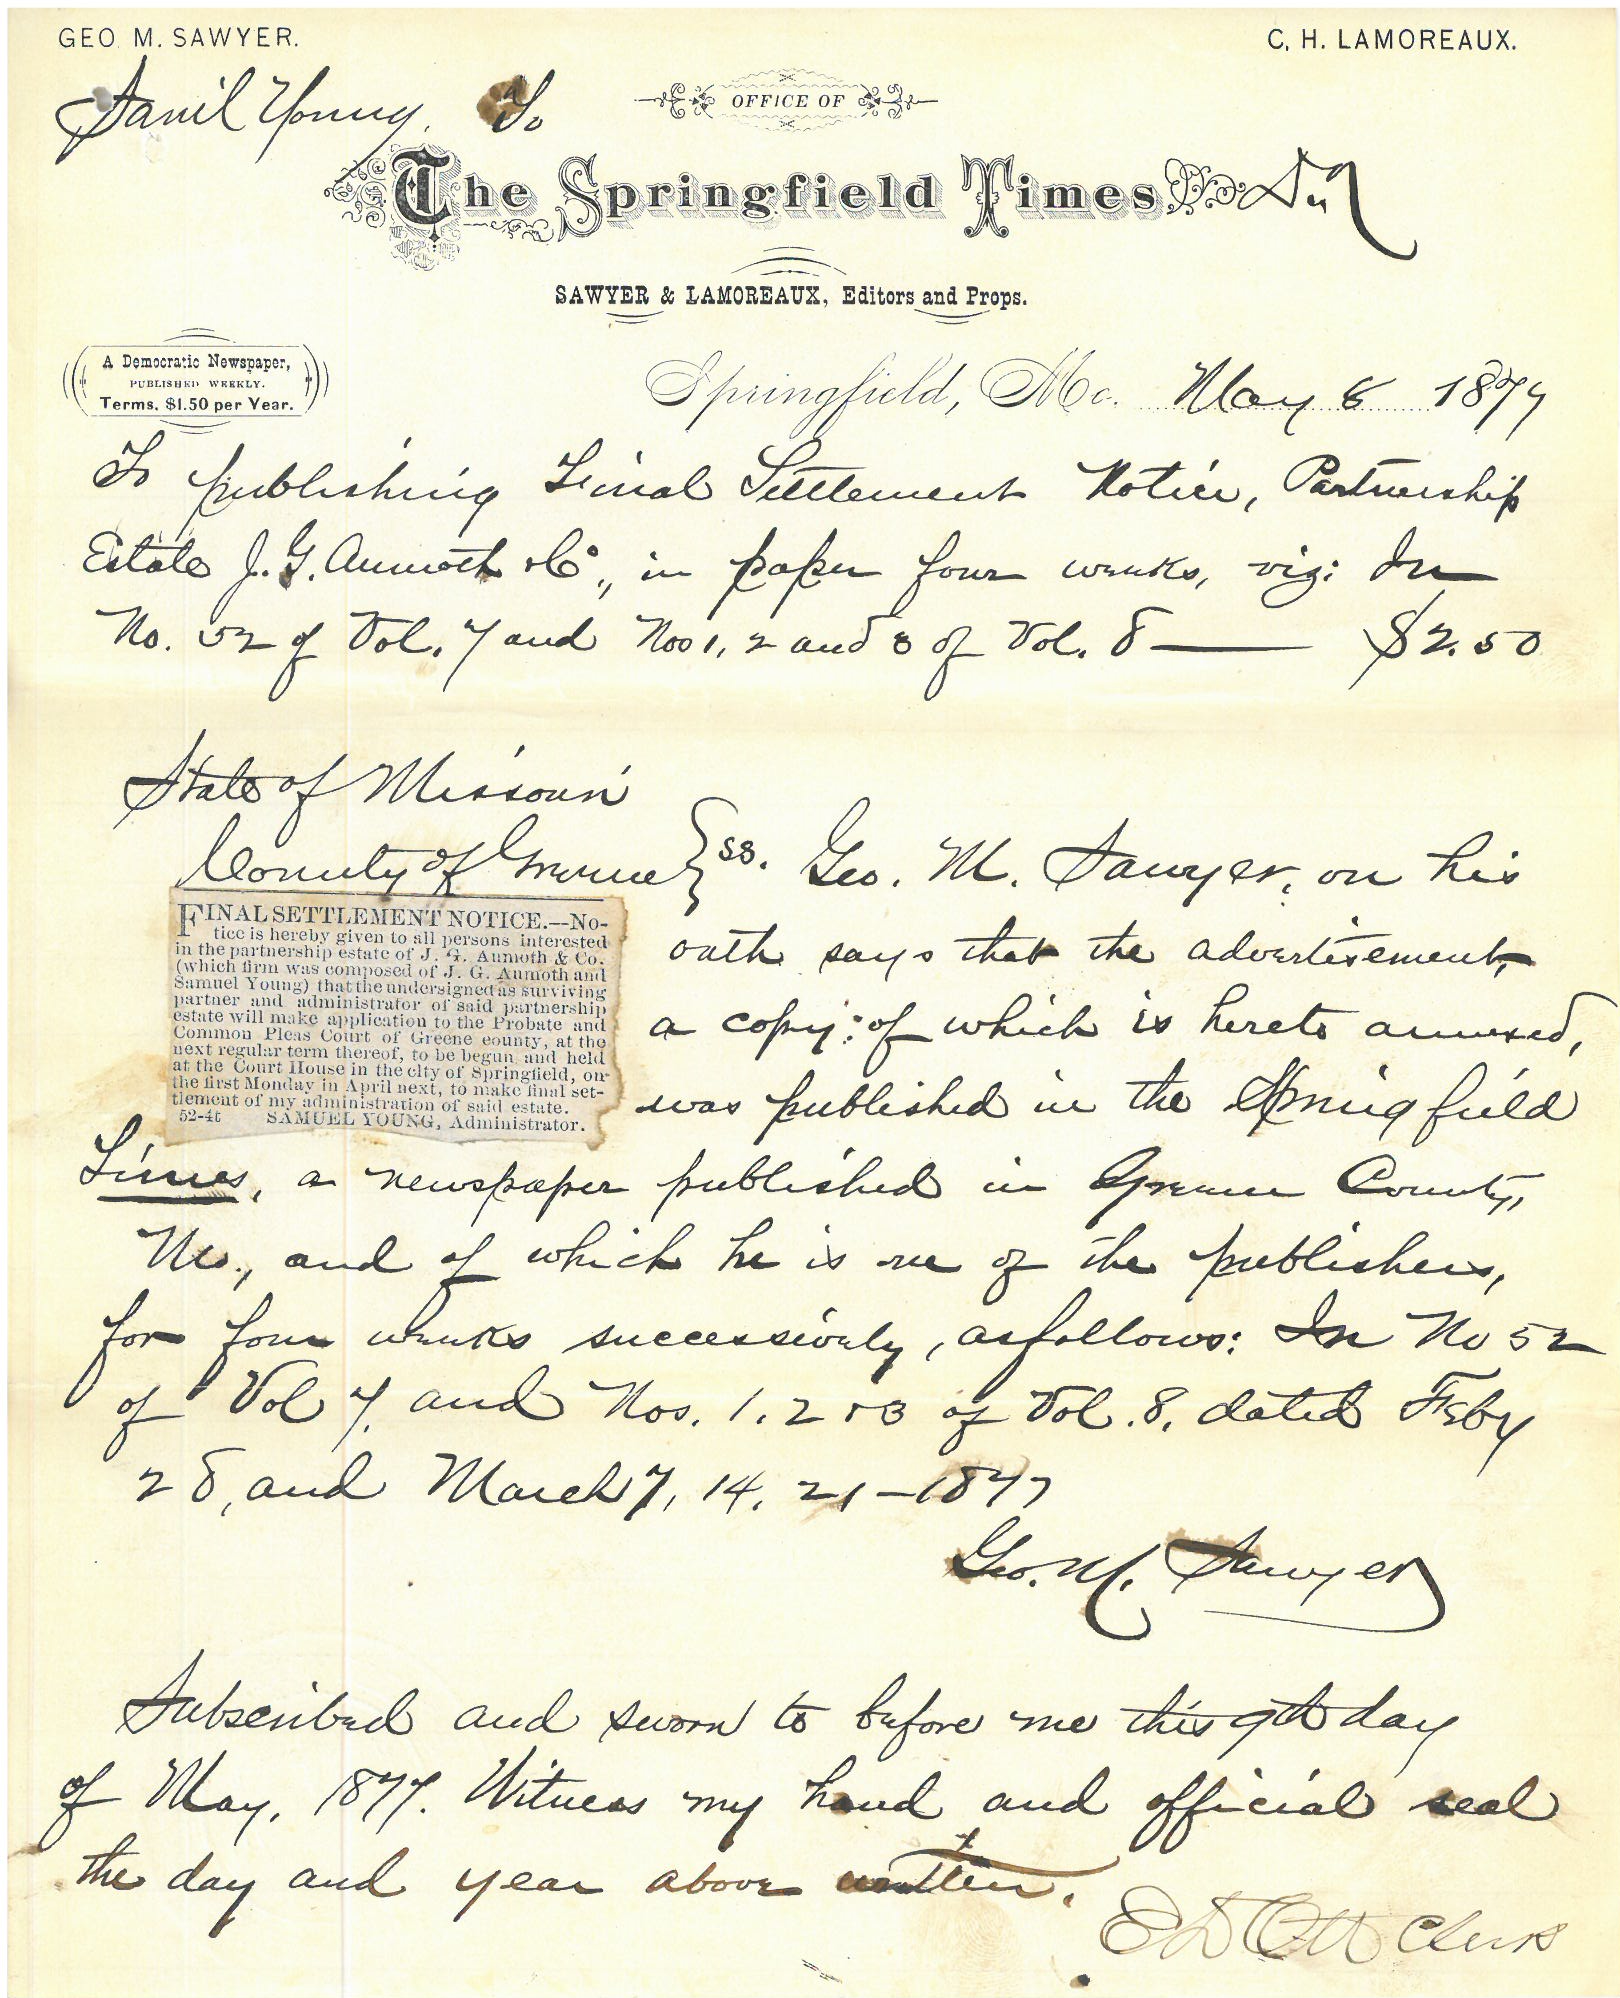 GEO. M. SAWYER.
C. H. LAMOREAUX.
Saml Young, To
OFFICE OF
The Springfield Times Dr
SAWYER & LAMOREAUX, Editors and Props.
A Democratic Newspaper,
PUBLISHED WEEKLY.
Terms, $1.50 per Year.
Springfield, Mo. May 6 1877
To publishing Final Settlement Notice, Partnership
Estate J. G. Aumoth & Co., in paper four weeks, viz: In
No. 52 of Vol. 7 and Nos 1, 2 and 3 of Vol. 8 — $2.50
State of Missouri
County of Greene } ss. Geo. M. Sawyer, on his
oath says that the advertisement,
a copy of which is hereto annexed,
was published in the Springfield
FINAL SETTLEMENT NOTICE.—No-
tice is hereby given to all persons interested
in the partnership estate of J. G. Aumoth & Co.
(which firm was composed of J. G. Aumoth and
Samuel Young) that the undersigned as surviving
partner and administrator of said partnership
estate will make application to the Probate and
Common Pleas Court of Greene county, at the
next regular term thereof, to be begun and held
at the Court House in the city of Springfield, on
the first Monday in April next, to make final set-
tlement of my administration of said estate.
52-4t SAMUEL YOUNG, Administrator.
Times, a newspaper published in Greene County,
Mo., and of which he is one of the publishers,
for four weeks successively, as follows: In No 52
of Vol 7, and Nos. 1, 2 & 3 of Vol. 8, dated Feby
28, and March 7, 14, 21 – 1877
Geo. M. Sawyer
Subscribed and sworn to before me this 9th day
of May, 1877. Witness my hand and official seal
the day and year above written.
E D Ott Clerk